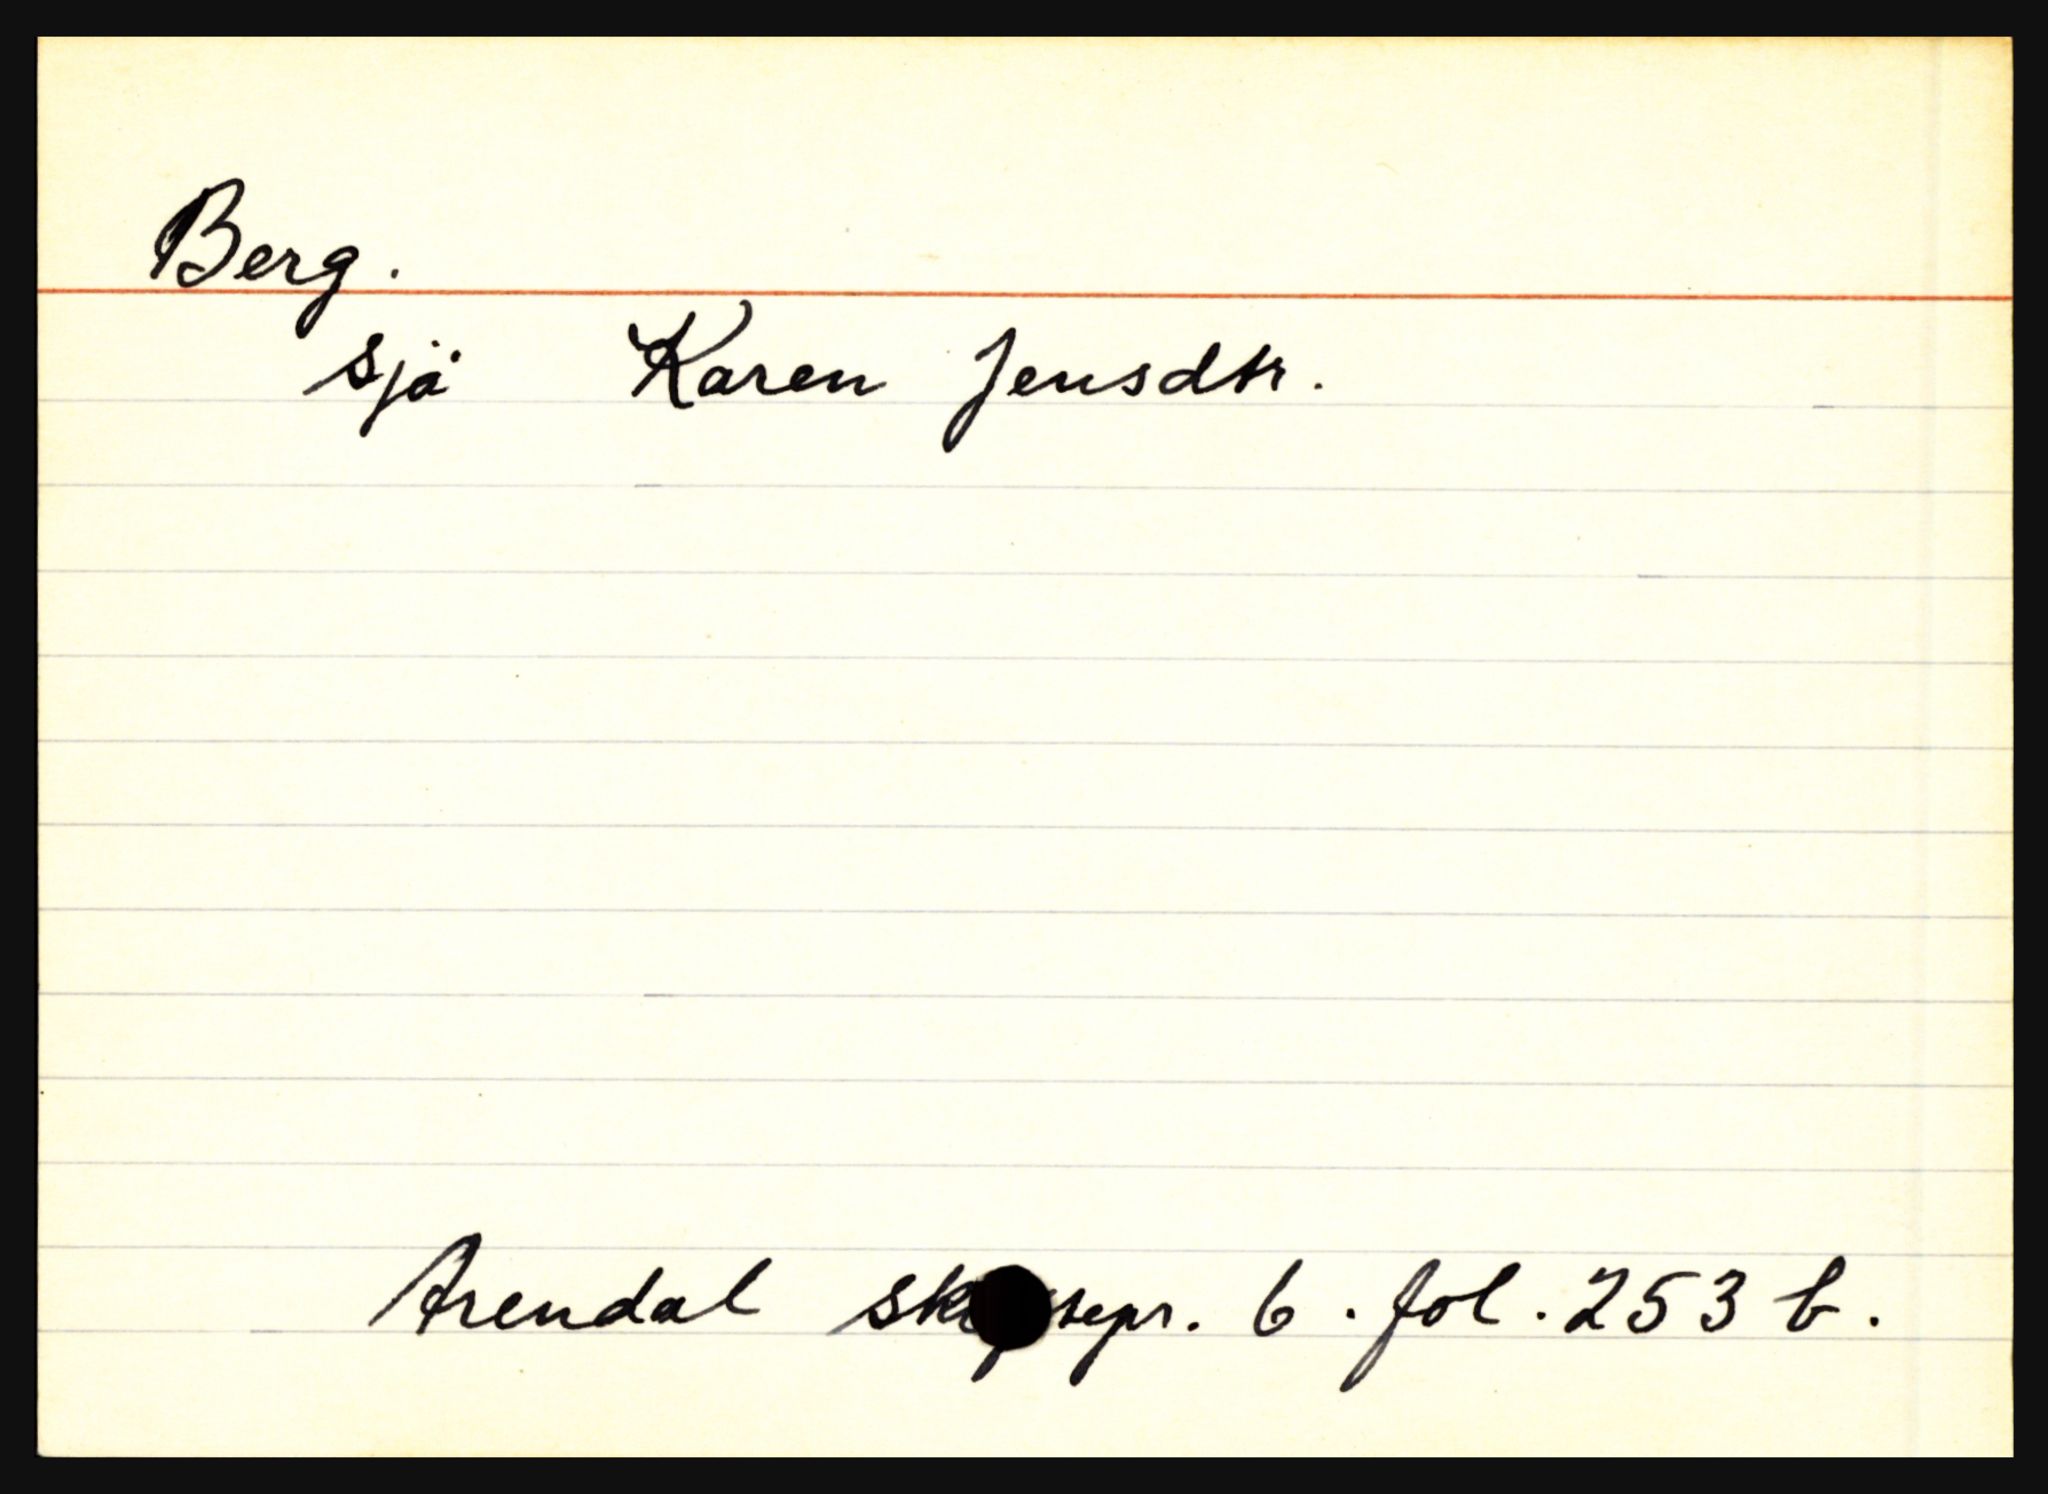 Berg.
sjä Karen Jensdtr.
Arendal 6. fol. 253 b.